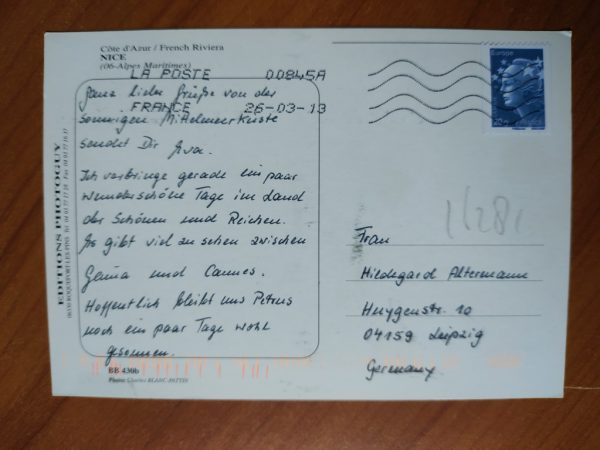 Côte d'Azur / French Riviera
NICE
(06-Alpes Maritimes)
LA POSTE 00845A
FRANCE 26-03-13
Europe
20g
Ganz liebe Grüße von der
sonnigen Mittelmeerküste
sendet Dir Eva.
Ich verbringe gerade ein paar
wunderschöne Tage im Land
der Schönen und Reichen.
Es gibt viel zu sehen zwischen
Genua und Cannes.
Hoffentlich bleibt uns Petrus
noch ein paar Tage wohl
gesonnen.
Frau
Hildegard Altermann
Huygenstr. 10
04159 Leipzig
Germany
EDITIONS PHOTOGUY
BB 430b
Photo: Charles BLANC-PATTIN